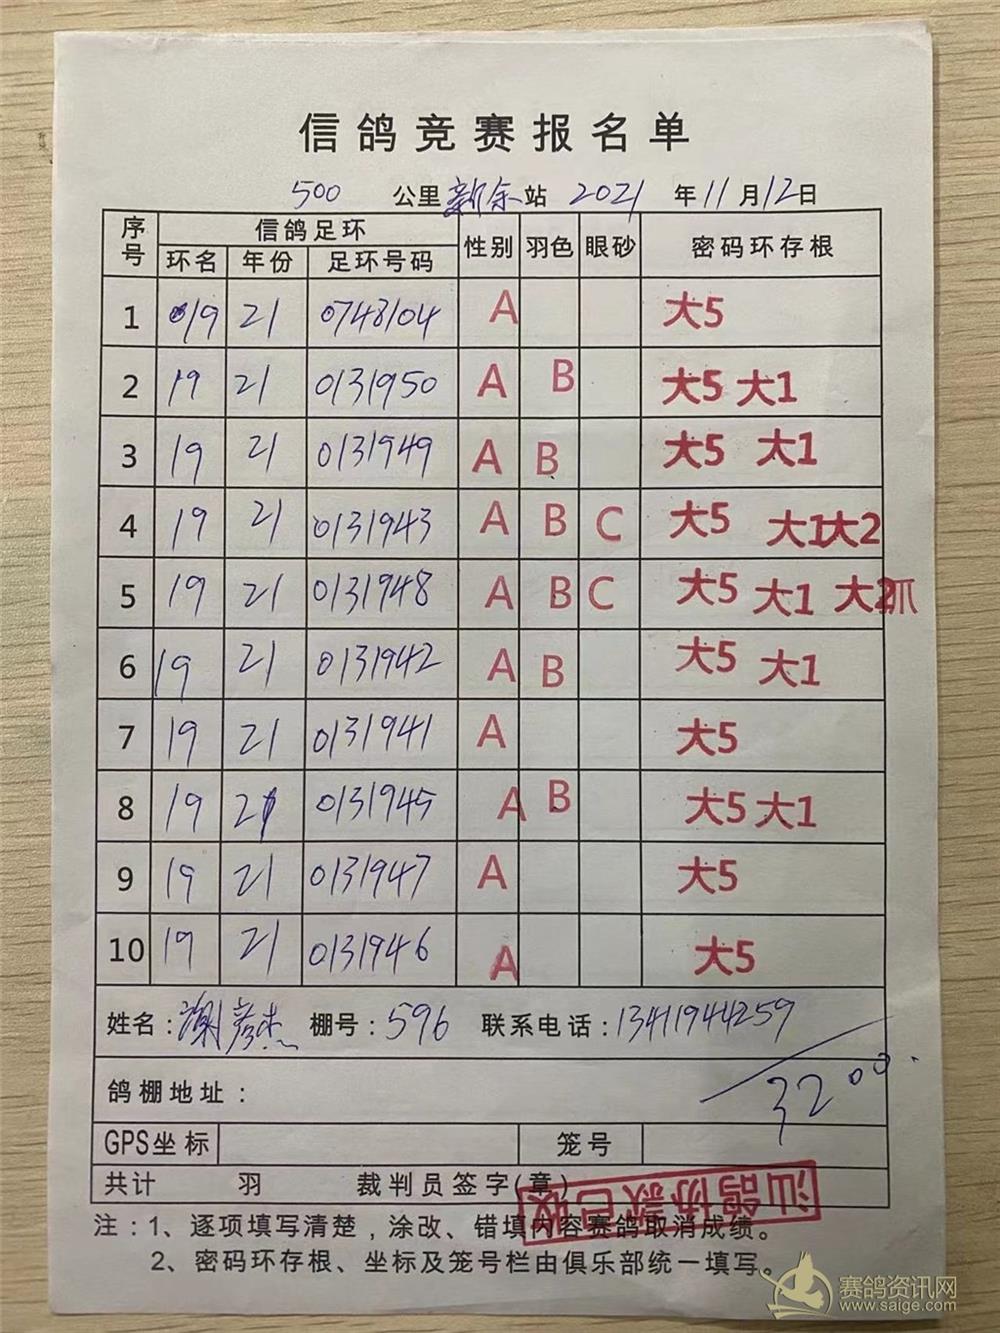 信鸽竞赛报名单
500 公里 新余 站 2021 年 11 月 12 日
序号 信鸽足环 性别 羽色 眼砂 密码环存根
环名 年份 足环号码
1 019 21 0748104 A 大5
2 19 21 0131950 A B 大5 大1
3 19 21 0131949 A B 大5 大1
4 19 21 0131943 A B C 大5 大1 大2
5 19 21 0131948 A B C 大5 大1 大2 爪
6 19 21 0131942 A B 大5 大1
7 19 21 0131941 A 大5
8 19 21 0131945 A B 大5 大1
9 19 21 0131947 A 大5
10 19 21 0131946 A 大5
姓名：谢彦杰 棚号：596 联系电话：13411944259
3200.
鸽棚地址：
GPS坐标 笼号
共计 羽 裁判员签字(章)
汕鸽协款已收
注：1、逐项填写清楚，涂改、错填内容赛鸽取消成绩。
2、密码环存根、坐标及笼号栏由俱乐部统一填写。
赛鸽资讯网
www.saige.com